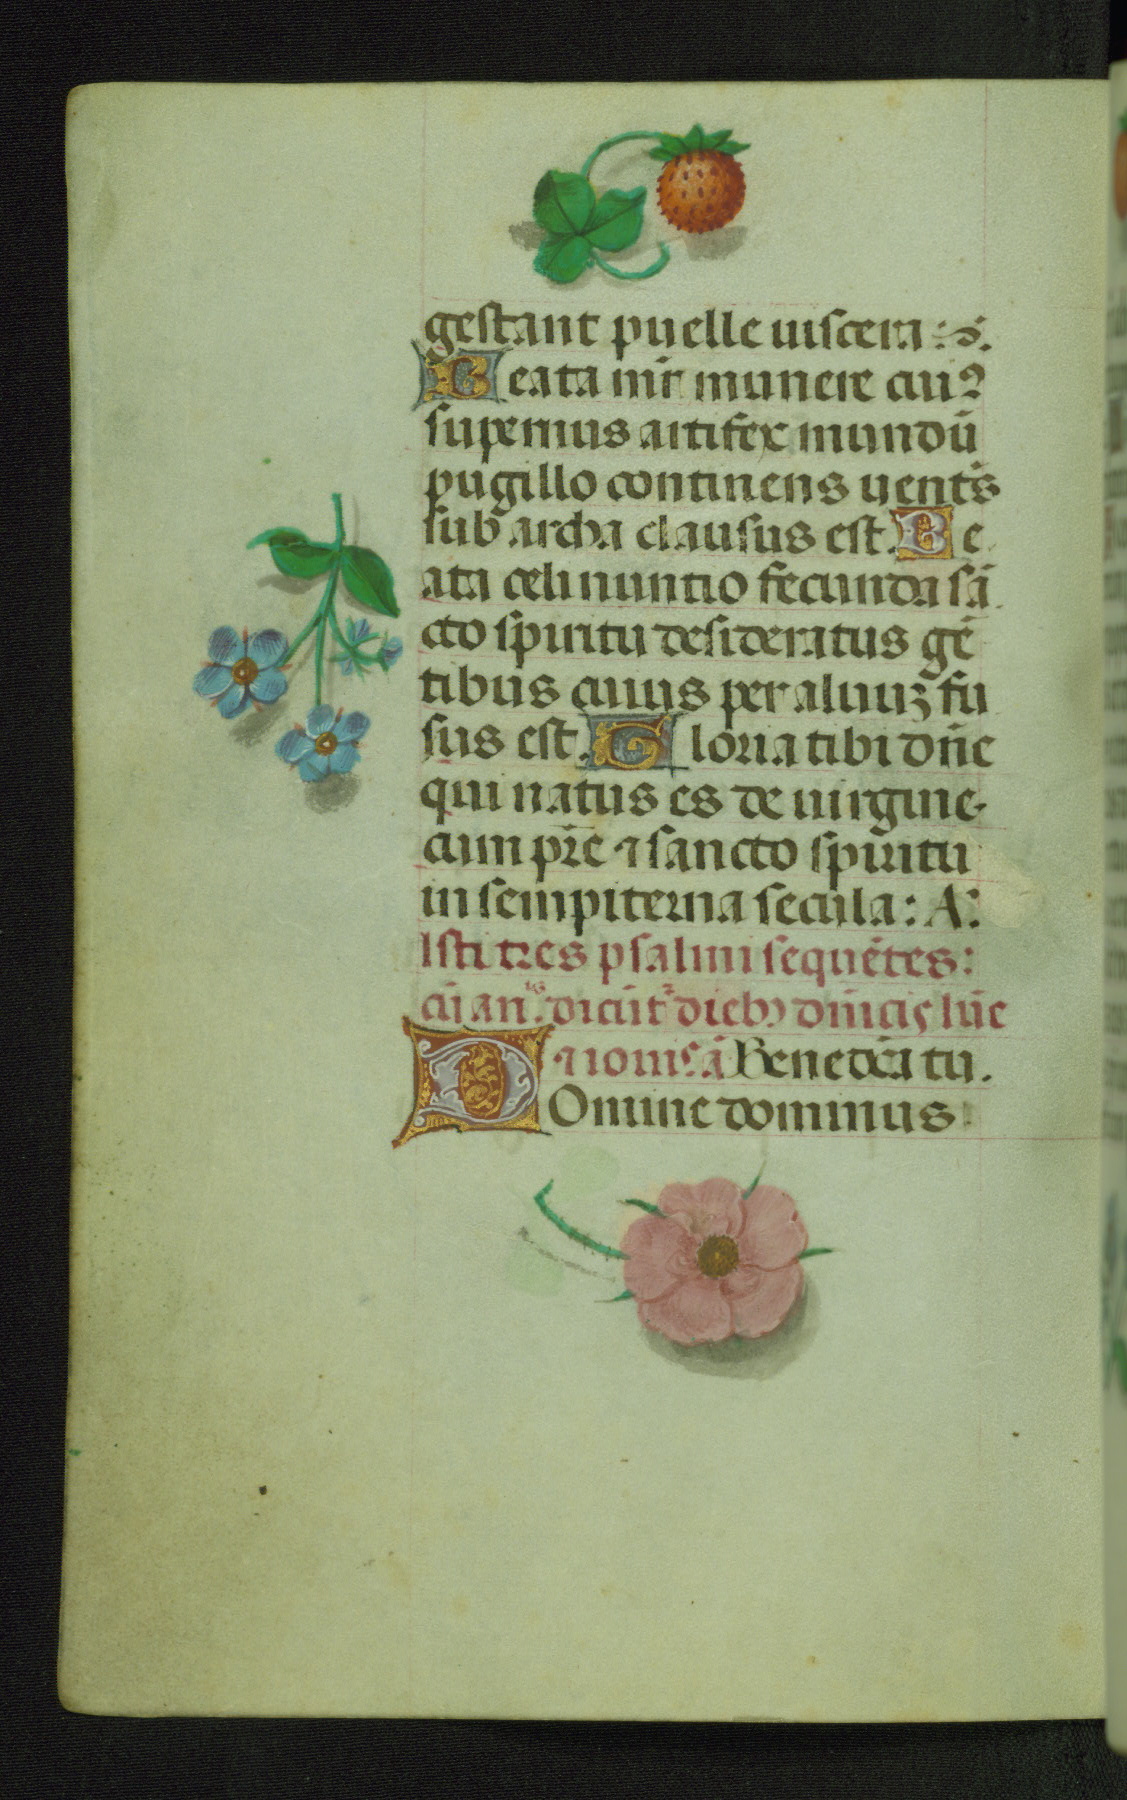 gestant puelle uiscera : ꝫ.
Beata mr̄ munere cuiꝰ
supernus artifex mundū
pugillo continens uentr̄s
sub archa clausus est. Be
ata celi nuntio fecunda sā
cto spiritu desideratus gē
tibus cuius per aluuꝫ fu
sus est. Gloria tibi dn̄e
qui natus es de uirgine
cum pr̄e ⁊ sancto spiritu
in sempiterna secula : A :
Isti tres psalmi sequētes :
cū an.ˡˢ dicūtʳ diebꝫ dn̄icis lūe
⁊ iouis. ā Benedcā tu.
Domine dominus